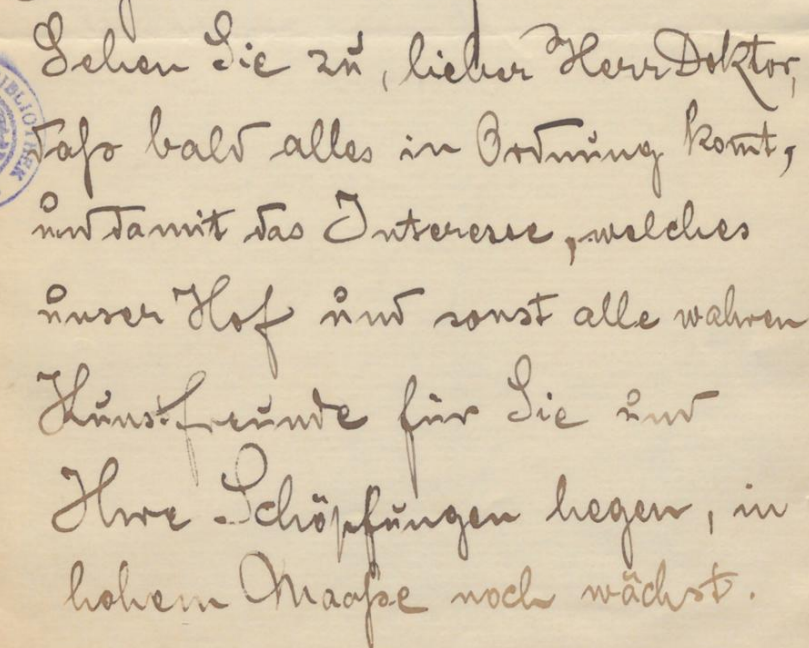 Sehen Sie zu, lieber Herr Doktor,
daß bald alles in Ordnung kom̄t,
und damit das Interesse, welches
unser Hof und sonst alle wahren
Kunstfreunde für Sie und
Ihre Schöpfungen hegen, in
hohem Maaße noch wächst.
BIBLIOTHEK